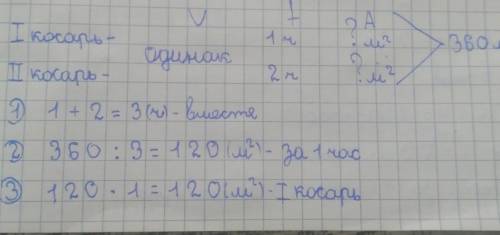 V t A
I косарь- одинак 1 ч ? м² 360
II косарь- 2 ч ? м²
① 1 + 2 = 3 (ч) - вместя
② 360 : 3 = 120 (м²) - за 1 час
③ 120 · 1 = 120 (м²) - I косарь